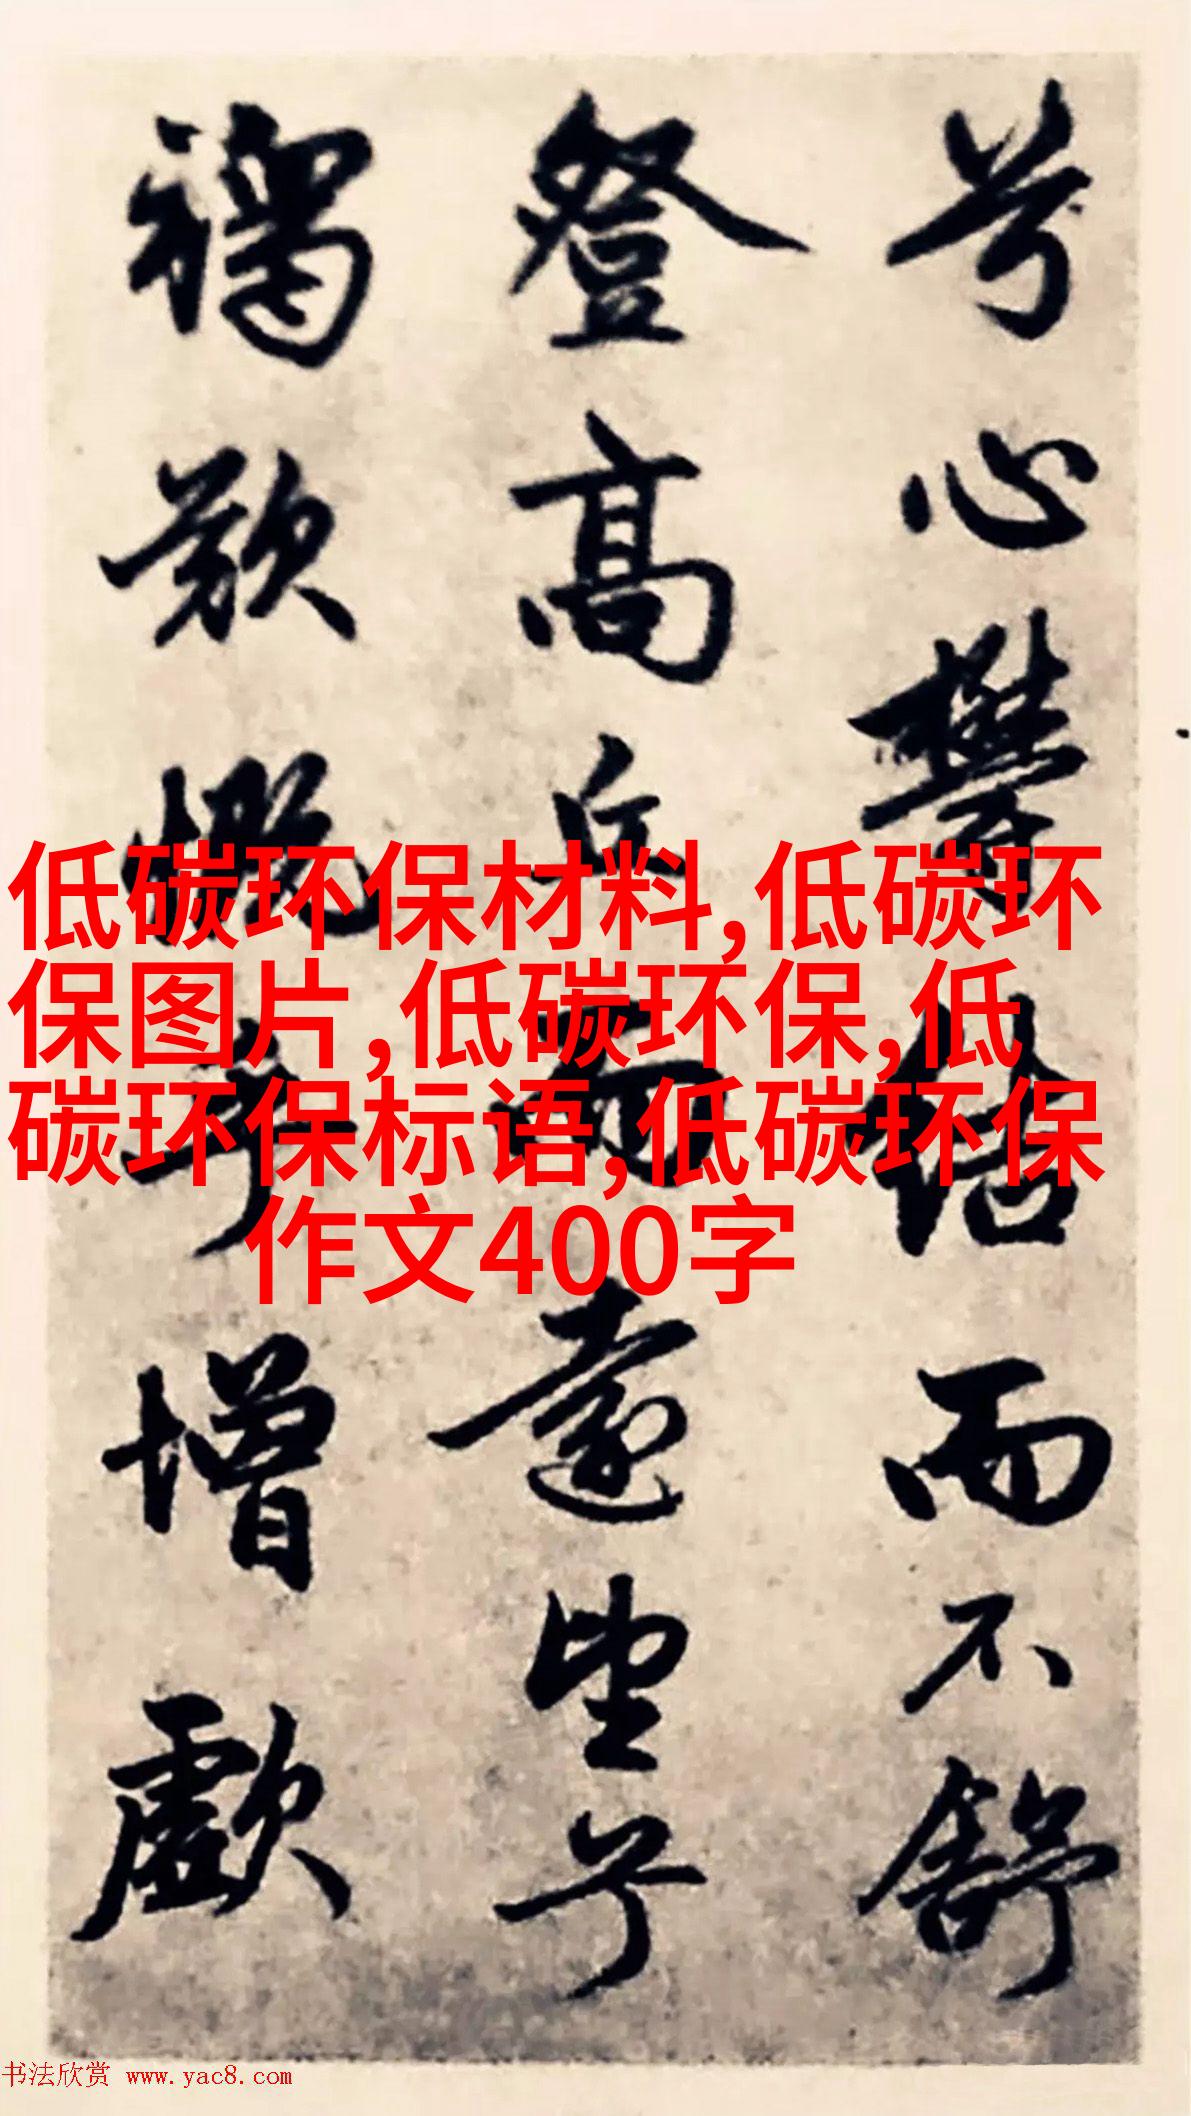 兮心鬱結而不舒
登高丘而遠望兮
褐歎慨兮增歔
低碳环保材料,低碳环
保图片,低碳环保,低
碳环保标语,低碳环保
作文400字
书法欣赏 www.yac8.com